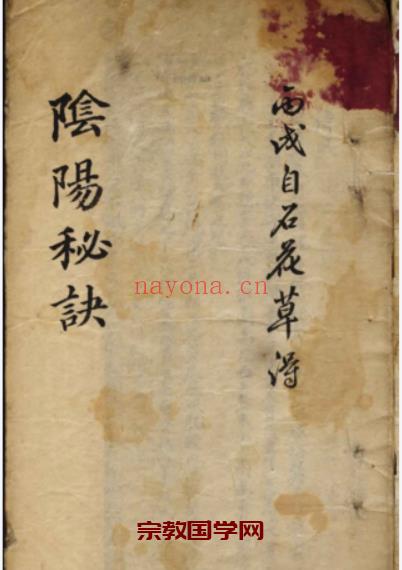 丙戌自石花草得
陰陽秘訣
nayona.cn
宗教国学网